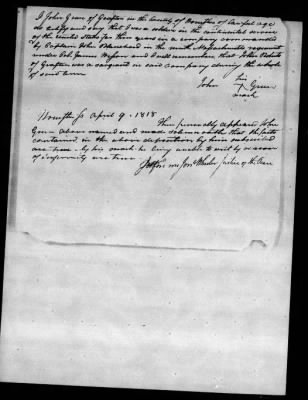 I John Green of Grafton in the County of Worcester of lawful age
do testify and say that I was a soldier in the continental service
of the United States for three years in a company commanded
by Captain John Blanchard in the ninth Massachusetts regiment
under Col. James Wesson and I well remember that John
of Grafton was a sergeant in said company during the whole
of said term
his
John + Green
mark
Worcester Ss April 9 - 1818 -
Then personally appeared John
Green above named and made solemn oath that the facts
contained in the above deposition by him subscribed
are true - by his mark he being unable to write by reason
of infirmity are true.
Before me Jon Wheeler Justice of the Peace